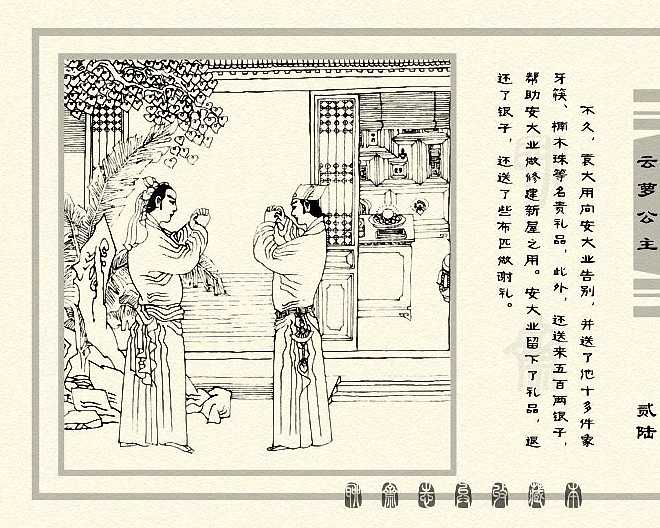 云萝公主
贰陆
不久，袁大用向安大业告别，并送了他十多件象
牙筷、楠木珠等名贵礼品，此外，还送来五百两银子，
帮助安大业做修建新屋之用。安大业留下了礼品，退
还了银子，还送了些布匹做谢礼。
聊斋志异收藏本